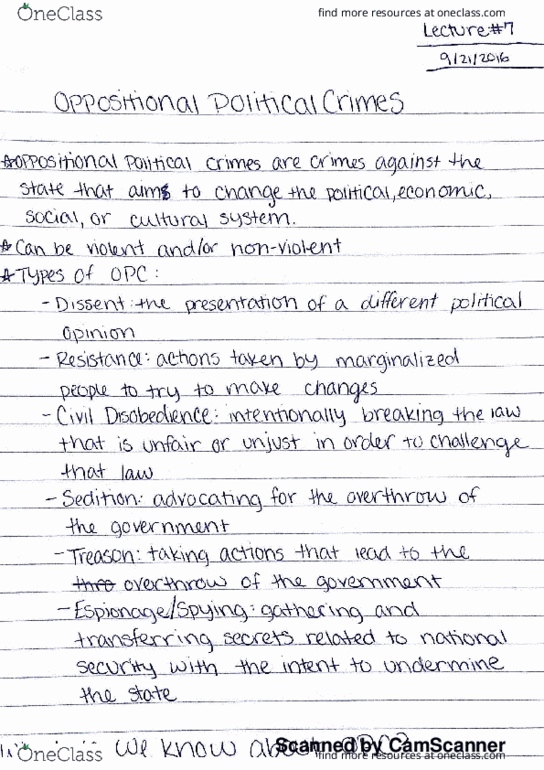 OneClass
find more resources at oneclass.com
Lecture #7
9/21/2016
Oppositional Political Crimes
☆oppositional political crimes are crimes against the
state that aims to change the political, economic,
social, or cultural system.
☆Can be violent and/or non-violent
☆Types of OPC:
- Dissent: the presentation of a different political
opinion
- Resistance: actions taken by marginalized
people to try to make changes
- Civil Disobedience: intentionally breaking the law
that is unfair or unjust in order to challenge
that law
- Sedition: advocating for the overthrow of
the government
- Treason: taking actions that lead to the
thro overthrow of the government
- Espionage/Spying: gathering and
transferring secrets related to national
security with the intent to undermine
the state
we know about OPC
Scanned by CamScanner
OneClass
find more resources at oneclass.com